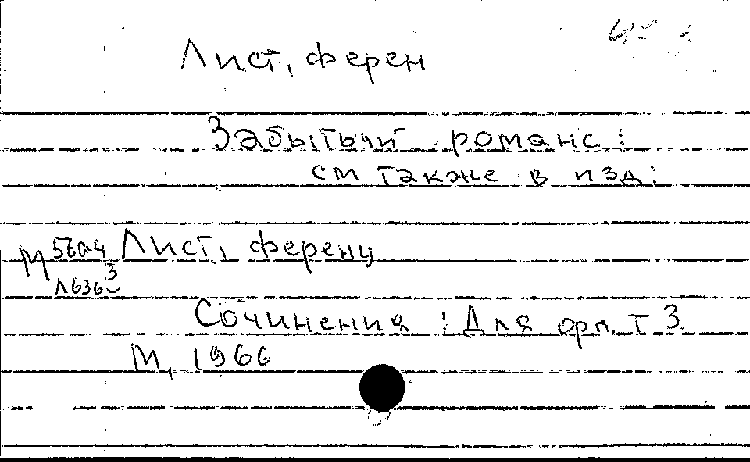 Лист, ферен
Забытый романс:
см также в изд:
М 5604 Лист, ференц
Л636 3
Сочинения: Для фп. Т 3
М, 1966